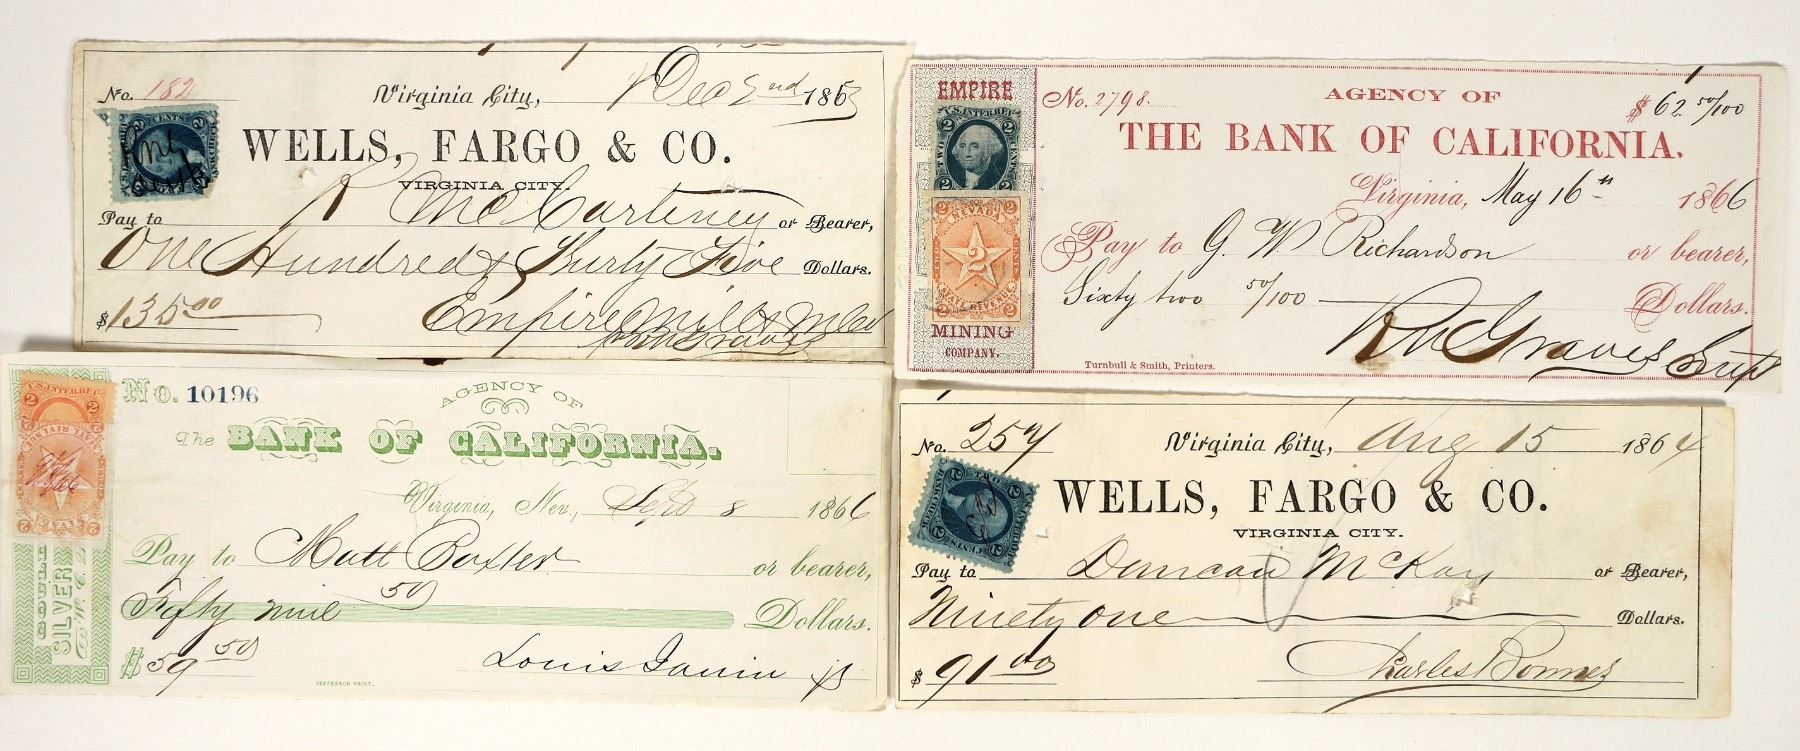 No. 182
Virginia City, Dec 2nd 1863
WELLS, FARGO & CO.
VIRGINIA CITY.
Pay to R McCarteney or Bearer,
One Hundred & Thirty Five Dollars.
$135.00
Empire Mill & M Co
RM Graves
U.S. INTER. REV.
2 CENTS
EMPIRE
MINING
COMPANY.
No. 2798.
AGENCY OF
$62.50/100
THE BANK OF CALIFORNIA.
Virginia, May 16th 1866
Pay to G. W Richardson or bearer,
Sixty two 50/100 Dollars.
RM Graves Supt
Turnbull & Smith, Printers.
U.S. INTER. REV.
2 TWO CENTS 2
2 NEVADA 2
2
2 STATE REVENUE 2
No. 10196
AGENCY OF
The BANK OF CALIFORNIA.
Virginia, Nev., Sept 8 1866
Pay to Matt Baxter or bearer,
Fifty nine 50 Dollars.
$59 50
Louis Janin Jr
GOULD
SILVER
U.S. INTER. REV.
No. 257
Virginia City, Aug 15 1864
WELLS, FARGO & CO.
VIRGINIA CITY.
Pay to Duncan McKay or Bearer,
Ninety one Dollars.
$91.00
Charles Bonner